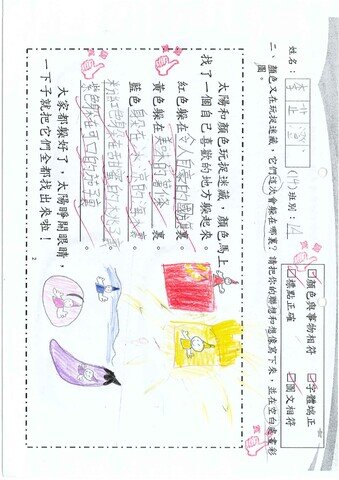 姓名：李芷 (14) 班別：1A
☑顏色與事物相符 ☑字體端正
☑標點正確 ☑圖文相符
二、顏色又在玩捉迷藏，它們這次會躲在哪裏？請把你的聯想和想像寫下來，並在空白處畫彩
圖。
太陽和顏色玩捉迷藏，顏色馬上
找了一個自己喜歡的地方躲起來。
紅色躲在令人自豪的國旗裏。
黃色躲在美味的薯條裏。
藍色躲在冰涼的裏。
粉紅色躲在甜蜜的
紫色躲在可口的茄子裏。
大家都躲好了，太陽睜開眼睛，
一下子就把它們全都找出來啦！
2